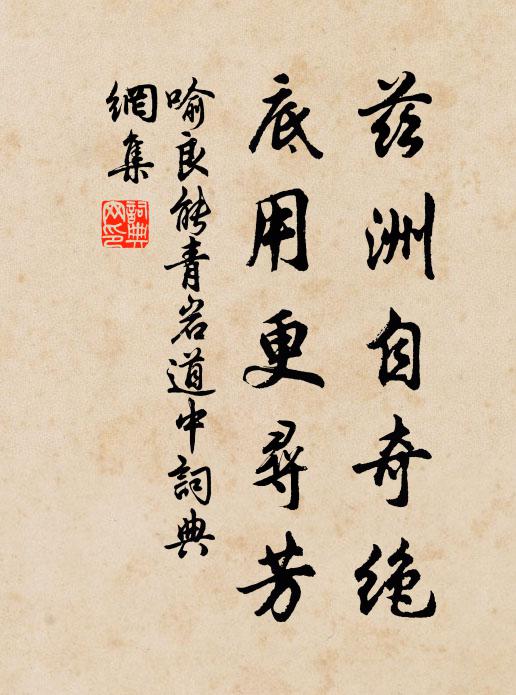 茲洲自奇絶
底用更尋芳
喻良能青岩道中詞典
網集
詞典
网印